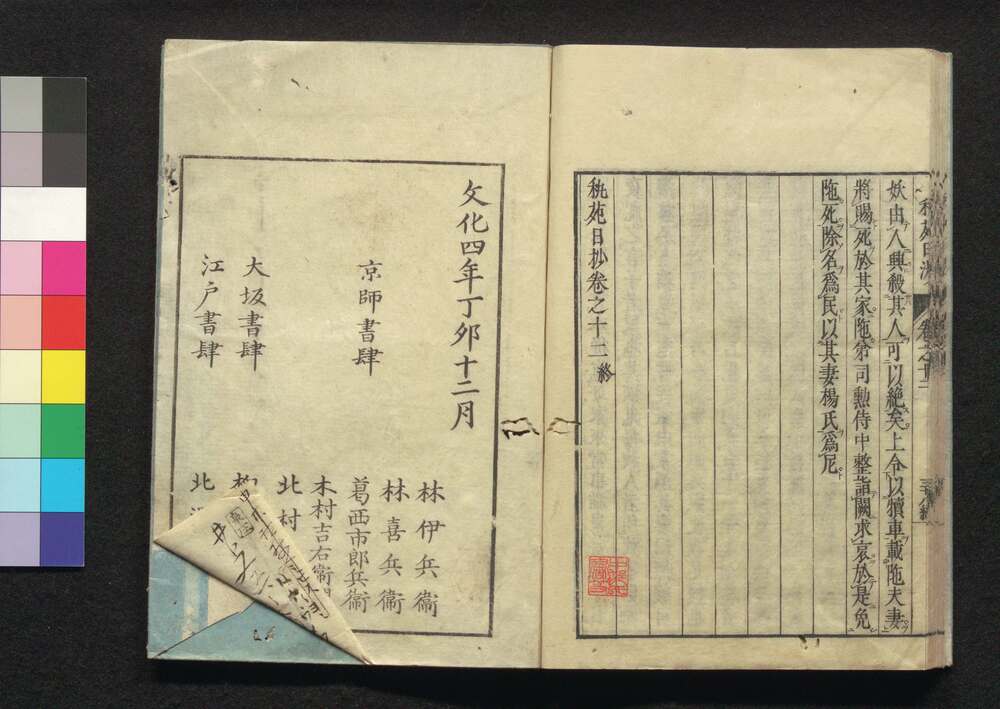 妖由人興殺其人可以絶矣上令以犢車載陁夫妻
將賜死於其家陁弟司勲侍中整詣闕求哀於是免
陁死除名爲民以其妻楊氏爲尼
秇苑日抄卷之十二終
文化四年丁卯十二月
京師書肆
林伊兵衞
林喜兵衞
葛西市郎兵衞
木村吉右衞
北村
大坂書肆
江戸書肆
北